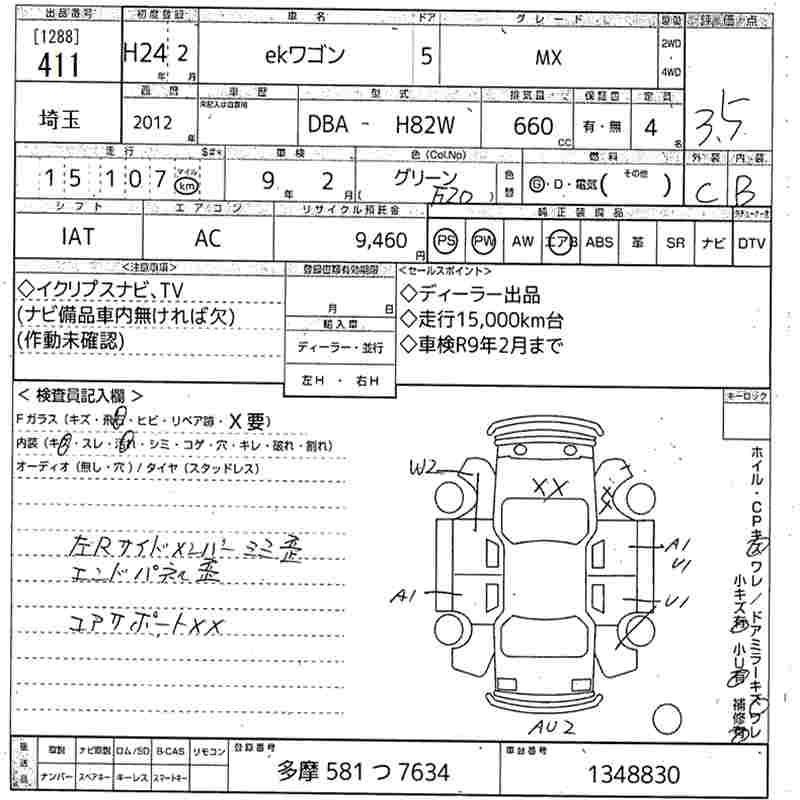 出品番号 初度登録 車名 ドア グレード 駆動 評価点
[1288]
411 H24年 2月 ekワゴン 5 MX 2WD・4WD 3.5
西暦 車歴 型式 排気量 保証書 定員
未記入は自家用
埼玉 2012年 DBA - H82W 660CC 有・無 4名
走行 車検 色(Col,No) 燃料 外装 内装
15107 マイル km 9年 2月 グリーン (F20) 色替 G・D・電気(その他) C B
シフト エアコン リサイクル預託金 純正装備品
IAT AC 9,460円 PS PW AW エアB ABS 革 SR ナビ DTV
<注意事項> 登録書類有効期限 <セールスポイント>
◇イクリプスナビ、TV
(ナビ備品車内無ければ欠)
(作動未確認)
月 日
輸入車
ディーラー・並行
左H・右H
◇ディーラー出品
◇走行15,000km台
◇車検R9年2月まで
<検査員記入欄>
Fガラス(キズ・飛石・ヒビ・リペア跡・X要)
内装(キズ・スレ・汚れ・シミ・コゲ・穴・キレ・破れ・割れ)
オーディオ(無し・穴)/タイヤ(スタッドレス)
キーロック
左Rサイドメンバー ミミ歪
エンドパネル歪
コアサポートXX
W2
XX
X
X
A1
U1
A1
U1
AU2
ホイル・CPキズ ワレ/ドアミラーキズ ワレ
小キズ有 小U有 補修有
後送品 取説 ナビ取説 ロム/SD B-CAS リモコン
ナンバー スペアキー キーレス スマートキー
登録番号
多摩 581 つ 7634
車台番号
1348830